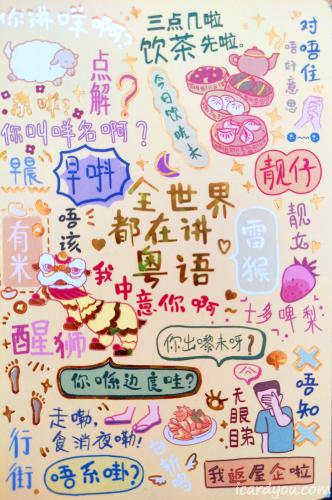 你讲咩啊?
三点几啦
饮茶先啦。
对唔住
唔好意思
点解?
今日饮咗未
你叫咩名啊?
早晨
早唞
靓仔
全世界
都在讲
粤语
唔该
有米
雷猴
靓女
我中意你啊~
士多啤梨
醒狮
你出嚟未呀?
你喺边度哇?
唔知
无眼睇
走嘞,
食消夜嘞!
白斩鸡
行街
唔系啩?
我返屋企啦
icardyou.com